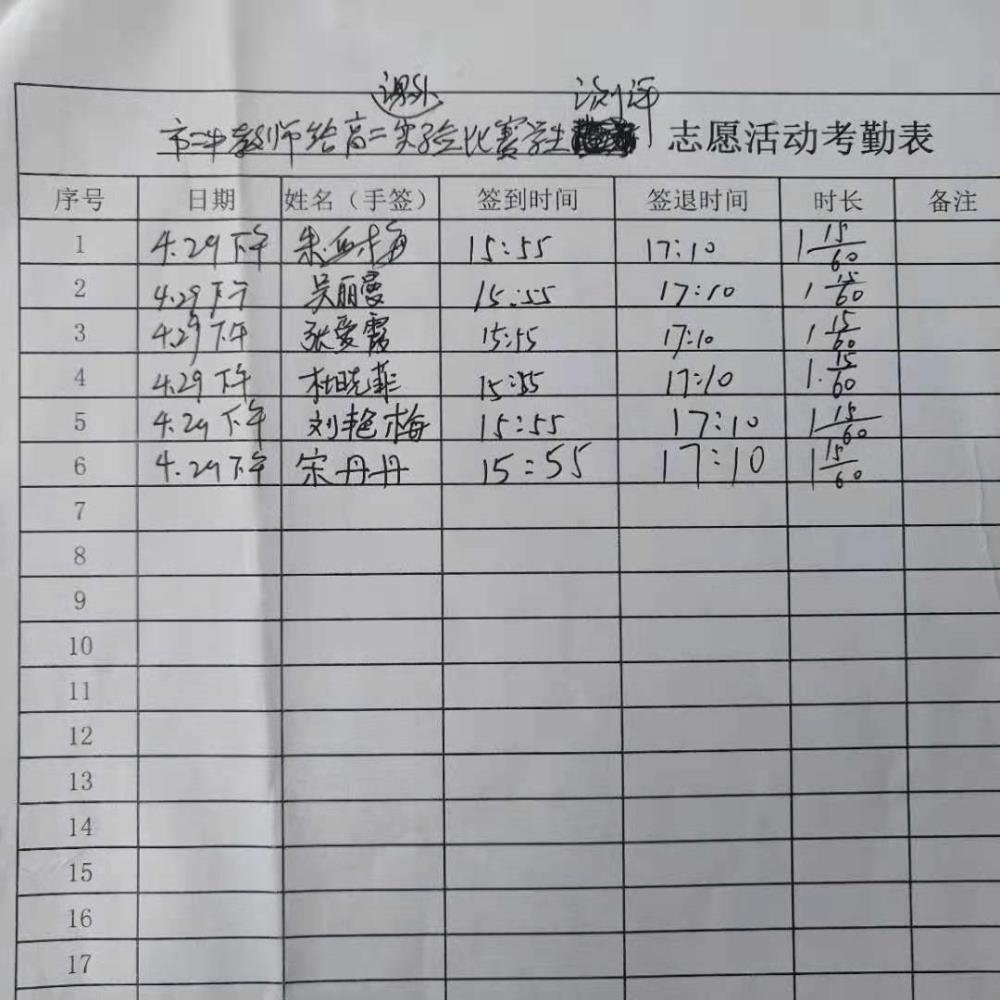 课外 测评
市二中教师给高二实验比赛学生 志愿活动考勤表
序号 日期 姓名（手签） 签到时间 签退时间 时长 备注
1 4.29下午 朱 梅 15:55 17:10 1 15/60
2 4.29下午 吴丽曼 15:55 17:10 1 15/60
3 4.29下午 张爱霞 15:55 17:10 1 15/60
4 4.29下午 杜晓菲 15:55 17:10 1. 15/60
5 4.29下午 刘艳梅 15:55 17:10 1 15/60
6 4.29下午 宋丹丹 15:55 17:10 1 15/60
7
8
9
10
11
12
13
14
15
16
17